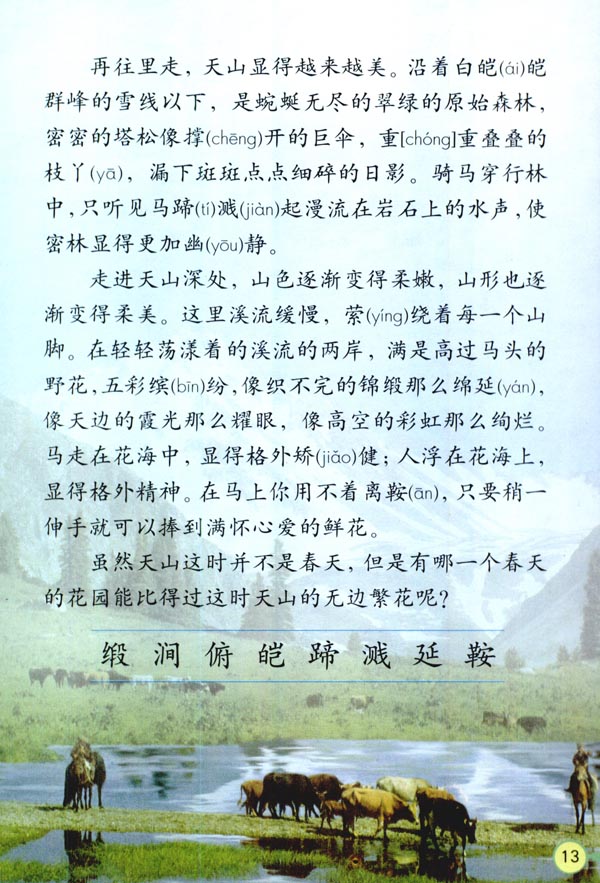 再往里走，天山显得越来越美。沿着白皑(ái)皑
群峰的雪线以下，是蜿蜒无尽的翠绿的原始森林，
密密的塔松像撑(chēng)开的巨伞，重[chóng]重叠叠的
枝丫(yā)，漏下斑斑点点细碎的日影。骑马穿行林
中，只听见马蹄(tí)溅(jiàn)起漫流在岩石上的水声，使
密林显得更加幽(yōu)静。
走进天山深处，山色逐渐变得柔嫩，山形也逐
渐变得柔美。这里溪流缓慢，萦(yíng)绕着每一个山
脚。在轻轻荡漾着的溪流的两岸，满是高过马头的
野花，五彩缤(bīn)纷，像织不完的锦缎那么绵延(yán)，
像天边的霞光那么耀眼，像高空的彩虹那么绚烂。
马走在花海中，显得格外矫(jiǎo)健；人浮在花海上，
显得格外精神。在马上你用不着离鞍(ān)，只要稍一
伸手就可以捧到满怀心爱的鲜花。
虽然天山这时并不是春天，但是有哪一个春天
的花园能比得过这时天山的无边繁花呢？
缎 涧 俯 皑 蹄 溅 延 鞍
13